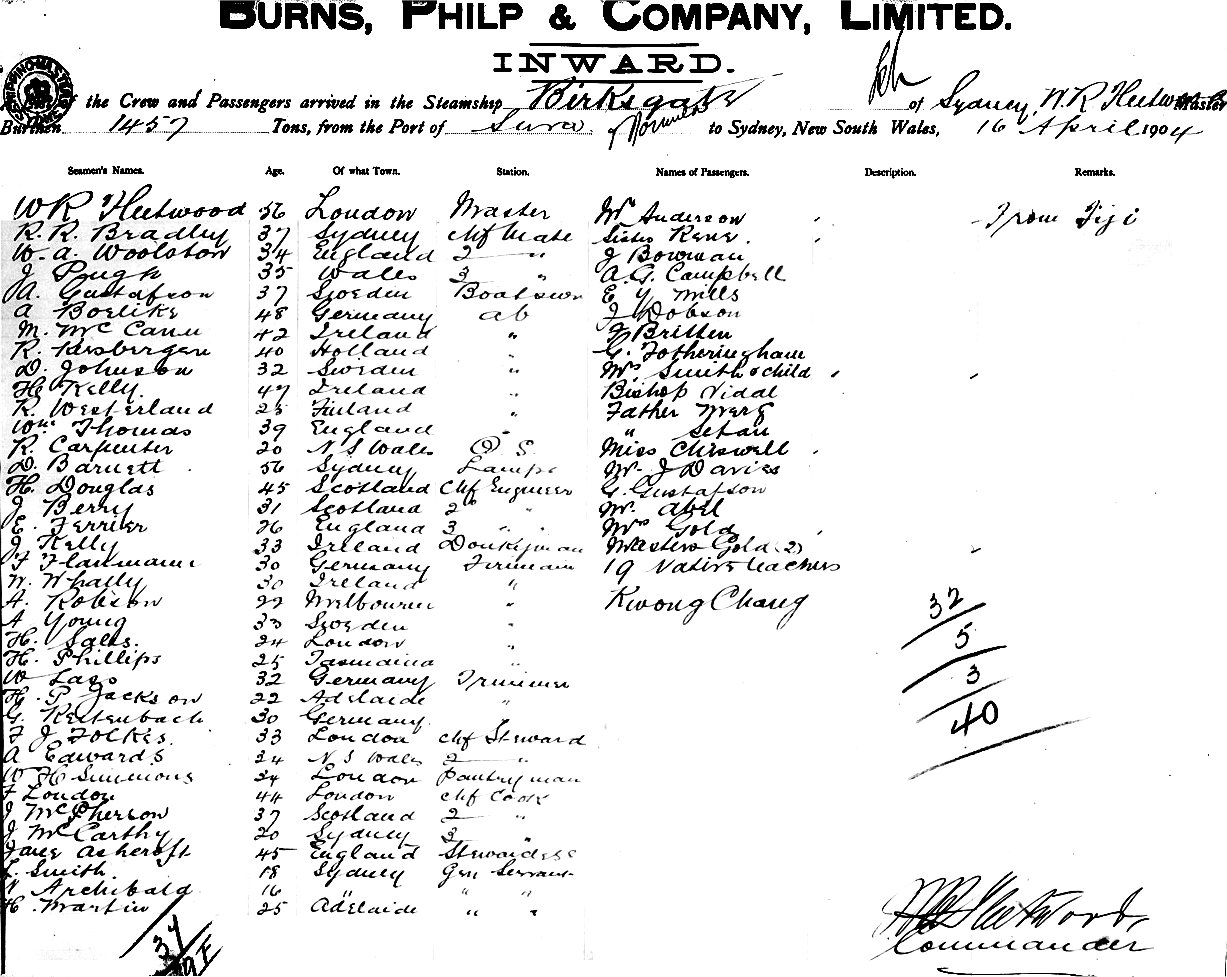 BURNS, PHILP & COMPANY, LIMITED.
INWARD.
of the Crew and Passengers arrived in the Steamship Birksgate of Sydney, W. R. Fleetwood Master
Burthen 1457 Tons, from the Port of Suva to Sydney, New South Wales, 16 April 1904
Seamen's Names. Age. Of what Town. Station. Names of Passengers. Description. Remarks.
W R Fleetwood 56 London Master Mr Anderson From Fiji
R. R. Bradley 37 Sydney Chf Mate Sister Rene.
W. A. Woolston 34 England 2 " J Bowman
J Pough 35 Wales 3 " A. G. Campbell
A. Gustafson 37 Sweden Boatswn E Y Mills
A Boelike 48 Germany ab J Dobson
M. McCann 42 Ireland " J Britten
R. 40 Holland " G. Fotheringham
D. Johnson 32 Sweden " Mrs Smith & child
H. Kelly. 47 Ireland " Bishop Vidal
R. Westerland 25 Finland " Father
Wm Thomas 39 England " "
R. Carpenter 20 N S Wales O. S. Miss Chiswell
D. Barnett 56 Sydney Lamps Mr J Davies
H. Douglas 45 Scotland Chf Engineer G. Gustafson
J Berry 31 Scotland 2 " Mr Abel
E. Ferrier 26 England 3 " " Mrs Gold
J Kelly 33 Ireland Donkeyman Masters Gold (2)
F 30 Germany Fireman 19 Native teachers
W. Whally 30 Ireland "
A. Robson 22 Melbourne " Kwong Chang 32
A Young 33 Sweden " 5
H. Sales. 24 London " 3
H. Phillips 25 Tasmania " 40
W Lago 32 Germany Trimmer
H. P Jackson 22 Adelaide "
G. Reitenbach 30 Germany.
F J Folkes. 33 London Chf Steward
A Edwards 24 N S Wales 2 "
W H Simmons 34 London Pantryman
F London 44 London Chf Cook
J McPherson 37 Scotland 2 "
J McCarthy 20 Sydney 3 "
Jane Ashcroft 45 England Stewardess
L. Smith. 18 Sydney Gen Servant
Archibald 16 " " "
H. Martin 25 Adelaide " "
37
W R Fleetwood,
Commander